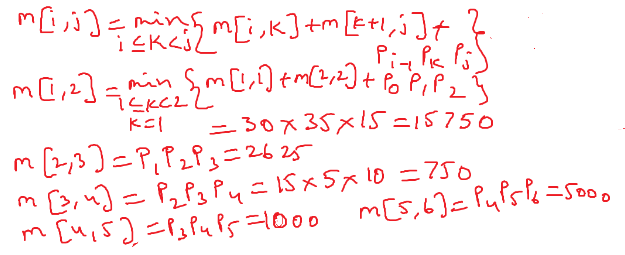 m[i,j] = min { m[i,k]+m[k+1,j]+
i≤k<j P_{i-1} P_k P_j }
m[1,2] = min { m[1,1]+m[2,2]+P_0 P_1 P_2 }
1≤k<2
k=1 = 30×35×15 = 15750
m[2,3] = P_1 P_2 P_3 = 2625
m[3,4] = P_2 P_3 P_4 = 15×5×10 = 750
m[4,5] = P_3 P_4 P_5 = 1000 m[5,6] = P_4 P_5 P_6 = 5000